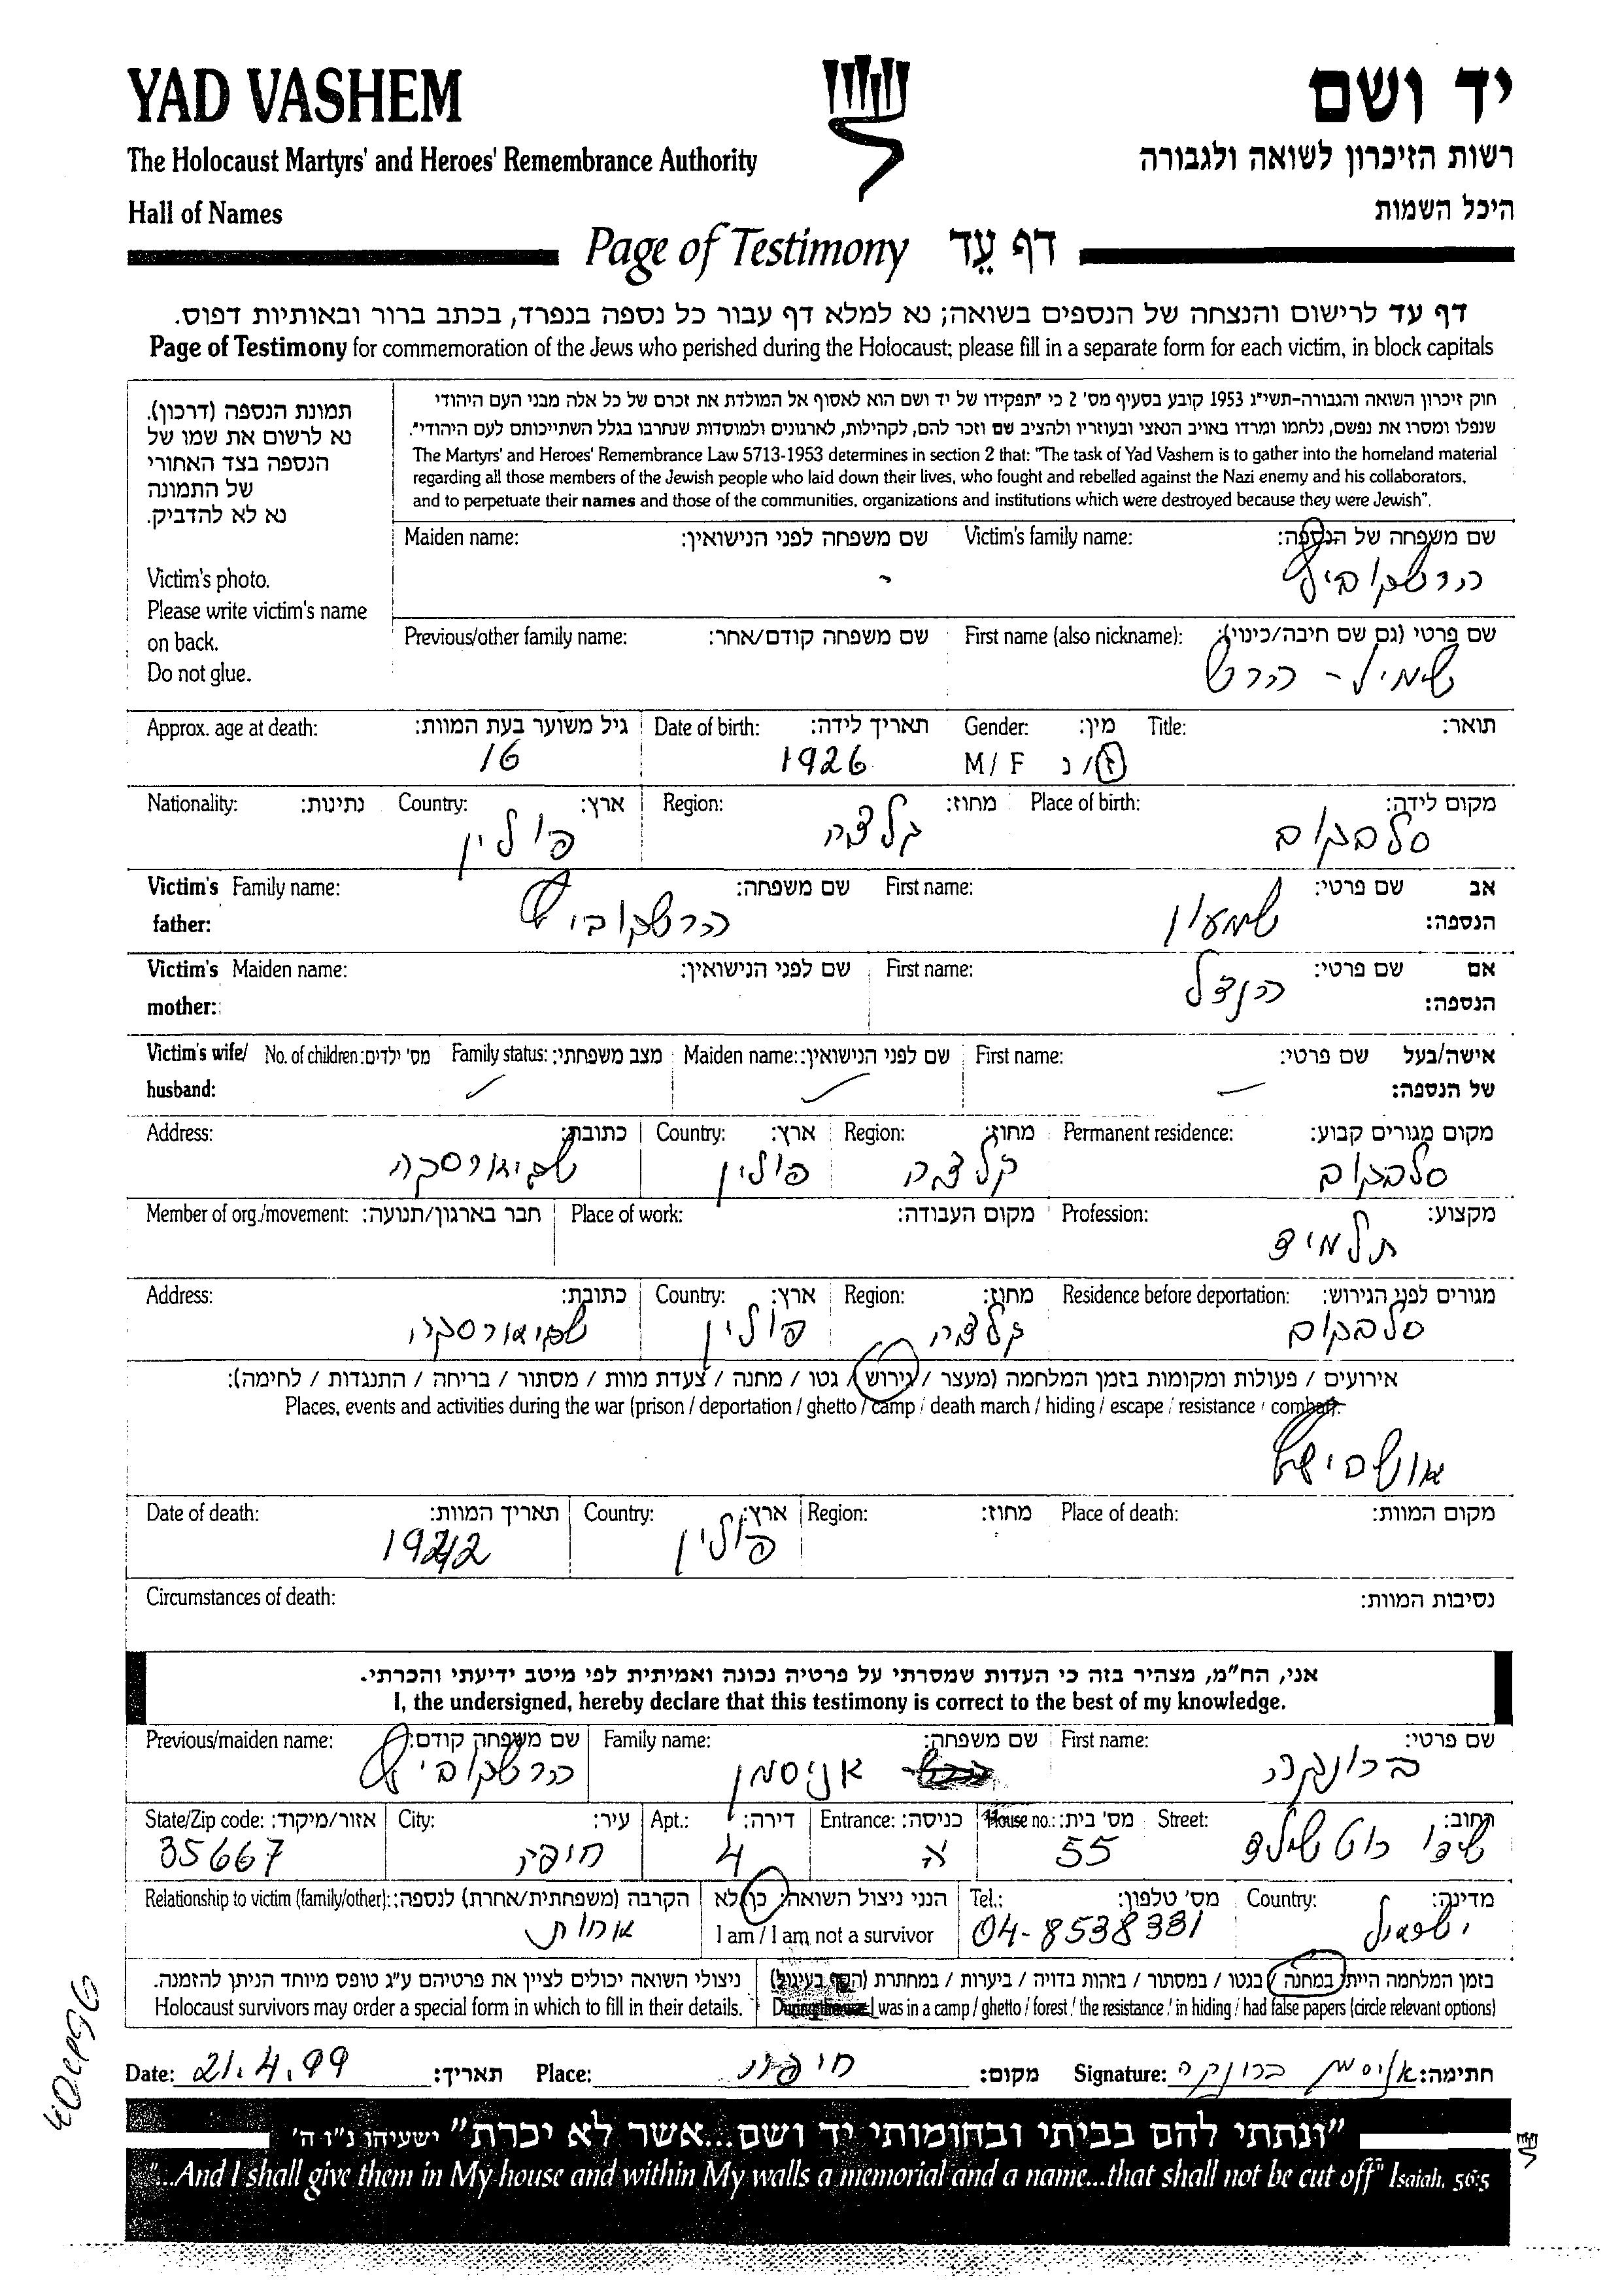 YAD VASHEM
יד ושם
The Holocaust Martyrs' and Heroes' Remembrance Authority
רשות הזיכרון לשואה ולגבורה
Hall of Names
היכל השמות
Page of Testimony דף עֵד
דף עד לרישום והנצחה של הנספים בשואה; נא למלא דף עבור כל נספה בנפרד, בכתב ברור ובאותיות דפוס.
Page of Testimony for commemoration of the Jews who perished during the Holocaust; please fill in a separate form for each victim, in block capitals
תמונת הנספה (דרכון).
נא לרשום את שמו של
הנספה בצד האחורי
של התמונה
נא לא להדביק.
Victim's photo.
Please write victim's name
on back.
Do not glue.
חוק זיכרון השואה והגבורה-תשי"ג 1953 קובע בסעיף מס' 2 כי "תפקידו של יד ושם הוא לאסוף אל המולדת את זכרם של כל אלה מבני העם היהודי
שנפלו ומסרו את נפשם, נלחמו ומרדו באויב הנאצי ובעוזריו ולהציב שם וזכר להם, לקהילות, לארגונים ולמוסדות שנחרבו בגלל השתייכותם לעם היהודי".
The Martyrs' and Heroes' Remembrance Law 5713-1953 determines in section 2 that: "The task of Yad Vashem is to gather into the homeland material
regarding all those members of the Jewish people who laid down their lives, who fought and rebelled against the Nazi enemy and his collaborators,
and to perpetuate their names and those of the communities, organizations and institutions which were destroyed because they were Jewish".
Maiden name: שם משפחה לפני הנישואין: Victim's family name: שם משפחה של הנספה:
הרשקוביץ
Previous/other family name: שם משפחה קודם/אחר: First name (also nickname): שם פרטי (גם שם חיבה/כינוי):
שמיל - הרש
Approx. age at death: גיל משוער בעת המוות: Date of birth: תאריך לידה: Gender: מין: Title: תואר:
16 1926 M / F ז/נ
Nationality: נתינות: Country: ארץ: Region: מחוז: Place of birth: מקום לידה:
פולין קלצה סלבקוב
Victim's Family name: שם משפחה: First name: שם פרטי: אב
father: הרשקוביץ שמעון הנספה:
Victim's Maiden name: שם לפני הנישואין: First name: שם פרטי: אם
mother: הנדל הנספה:
Victim's wife/ No. of children: מס' ילדים: Family status: מצב משפחתי: Maiden name: שם לפני הנישואין: First name: שם פרטי: אישה/בעל
husband: של הנספה:
Address: כתובת: Country: ארץ: Region: מחוז: Permanent residence: מקום מגורים קבוע:
פולין קלצה סלבקוב
Member of org./movement: חבר בארגון/תנועה: Place of work: מקום העבודה: Profession: מקצוע:
תלמיד
Address: כתובת: Country: ארץ: Region: מחוז: Residence before deportation: מגורים לפני הגירוש:
פולין קלצה סלבקוב
אירועים / פעולות ומקומות בזמן המלחמה (מעצר / גירוש / גטו / מחנה / צעדת מוות / מסתור / בריחה / התנגדות / לחימה):
Places, events and activities during the war (prison / deportation / ghetto / camp / death march / hiding / escape / resistance / combat):
אושביץ
Date of death: תאריך המוות: Country: ארץ: Region: מחוז: Place of death: מקום המוות:
1942 פולין
Circumstances of death: נסיבות המוות:
אני, הח"מ, מצהיר בזה כי העדות שמסרתי על פרטיה נכונה ואמיתית לפי מיטב ידיעתי והכרתי.
I, the undersigned, hereby declare that this testimony is correct to the best of my knowledge.
Previous/maiden name: שם משפחה קודם: Family name: שם משפחה: First name: שם פרטי:
הרשקוביץ אניסמן ברונקה
State/Zip code: אזור/מיקוד: City: עיר: Apt.: דירה: Entrance: כניסה: House no.: מס' בית: Street: רחוב:
35667 חיפה 4 א 55 שד' רוטשילד
Relationship to victim (family/other): הקרבה (משפחתית/אחרת) לנספה: הנני ניצול השואה: כן/לא Tel.: מס' טלפון: Country: מדינה:
אחות I am / I am not a survivor 04-8538331 ישראל
ניצולי השואה יכולים לציין את פרטיהם ע"ג טופס מיוחד הניתן להזמנה.
Holocaust survivors may order a special form in which to fill in their details.
בזמן המלחמה הייתי במחנה / בגטו / במסתור / בזהות בדויה / ביערות / במחתרת (הקף בעיגול)
During the war I was in a camp / ghetto / forest / the resistance / in hiding / had false papers (circle relevant options)
Date: 21.4.99 תאריך: Place: חיפה מקום: Signature: אניסמן ברונקה חתימה:
"ונתתי להם בביתי ובחומותי יד ושם...אשר לא יכרת" ישעיהו נ"ו ה'
"...And I shall give them in My house and within My walls a memorial and a name...that shall not be cut off" Isaiah, 56:5